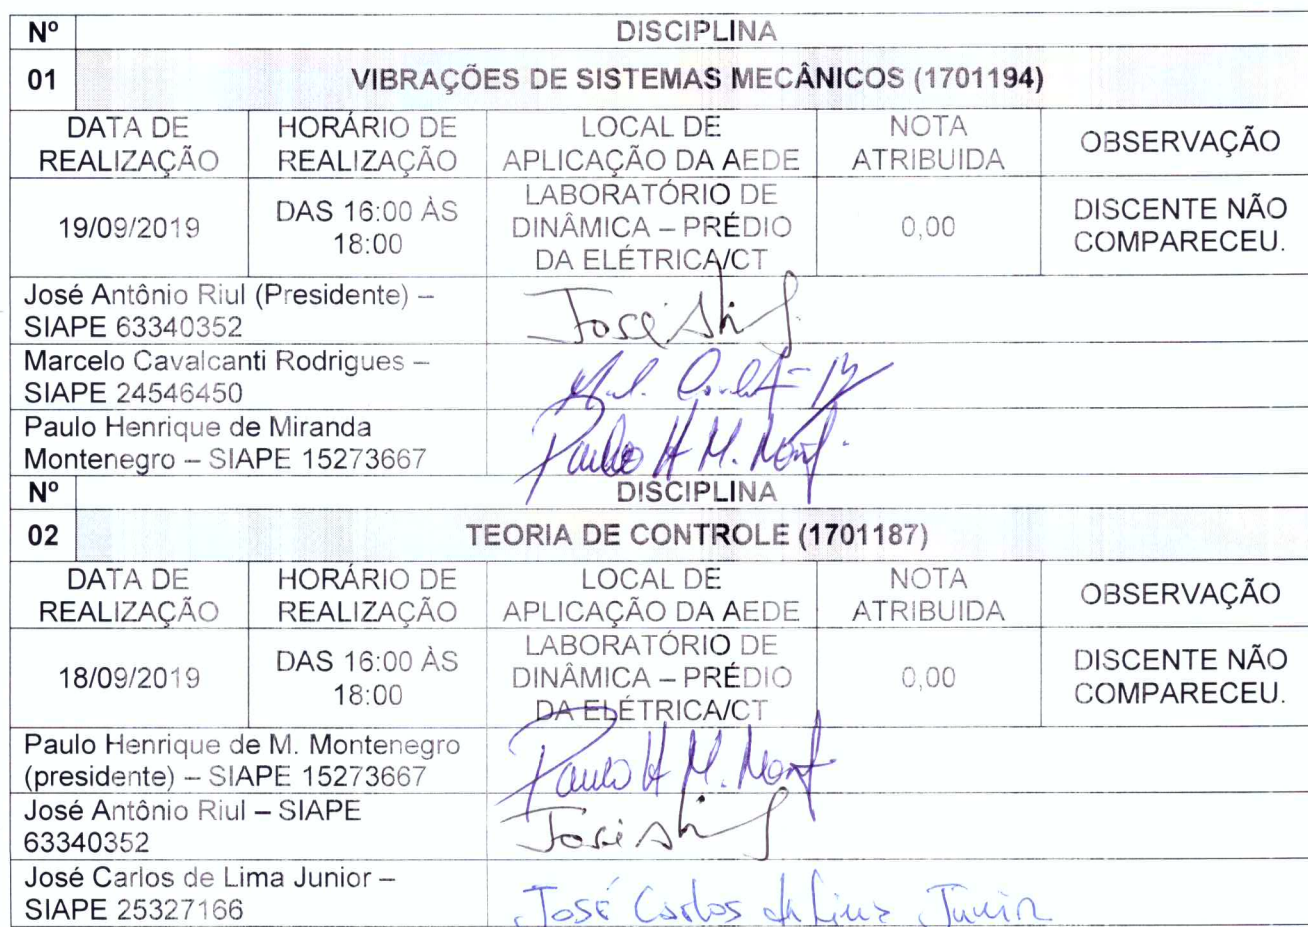 Nº DISCIPLINA
01 VIBRAÇÕES DE SISTEMAS MECÂNICOS (1701194)
DATA DE REALIZAÇÃO HORÁRIO DE REALIZAÇÃO LOCAL DE APLICAÇÃO DA AEDE NOTA ATRIBUIDA OBSERVAÇÃO
19/09/2019 DAS 16:00 ÀS 18:00 LABORATÓRIO DE DINÂMICA – PRÉDIO DA ELÉTRICA/CT 0,00 DISCENTE NÃO COMPARECEU.
José Antônio Riul (Presidente) –
SIAPE 63340352
Marcelo Cavalcanti Rodrigues –
SIAPE 24546450
Paulo Henrique de Miranda
Montenegro – SIAPE 15273667
Paulo H. M. Mont.
Nº DISCIPLINA
02 TEORIA DE CONTROLE (1701187)
DATA DE REALIZAÇÃO HORÁRIO DE REALIZAÇÃO LOCAL DE APLICAÇÃO DA AEDE NOTA ATRIBUIDA OBSERVAÇÃO
18/09/2019 DAS 16:00 ÀS 18:00 LABORATÓRIO DE DINÂMICA – PRÉDIO DA ELÉTRICA/CT 0,00 DISCENTE NÃO COMPARECEU.
Paulo Henrique de M. Montenegro
(presidente) – SIAPE 15273667
Paulo H. M. Mont.
José Antônio Riul – SIAPE
63340352
José Carlos de Lima Junior –
SIAPE 25327166
José Carlos de Lima Junior